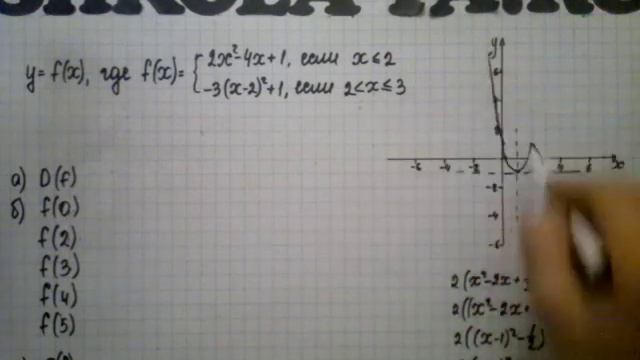 y = f(x), где f(x) = { 2x²-4x+1, если x ≤ 2
-3(x-2)²+1, если 2<x≤3
а) D(f)
б) f(0)
f(2)
f(3)
f(4)
f(5)
y
x
-6 -4 -2 4 6
-2
-4
-6
2(x²-2x+
2((x²-2x+
2((x-1)²-½)